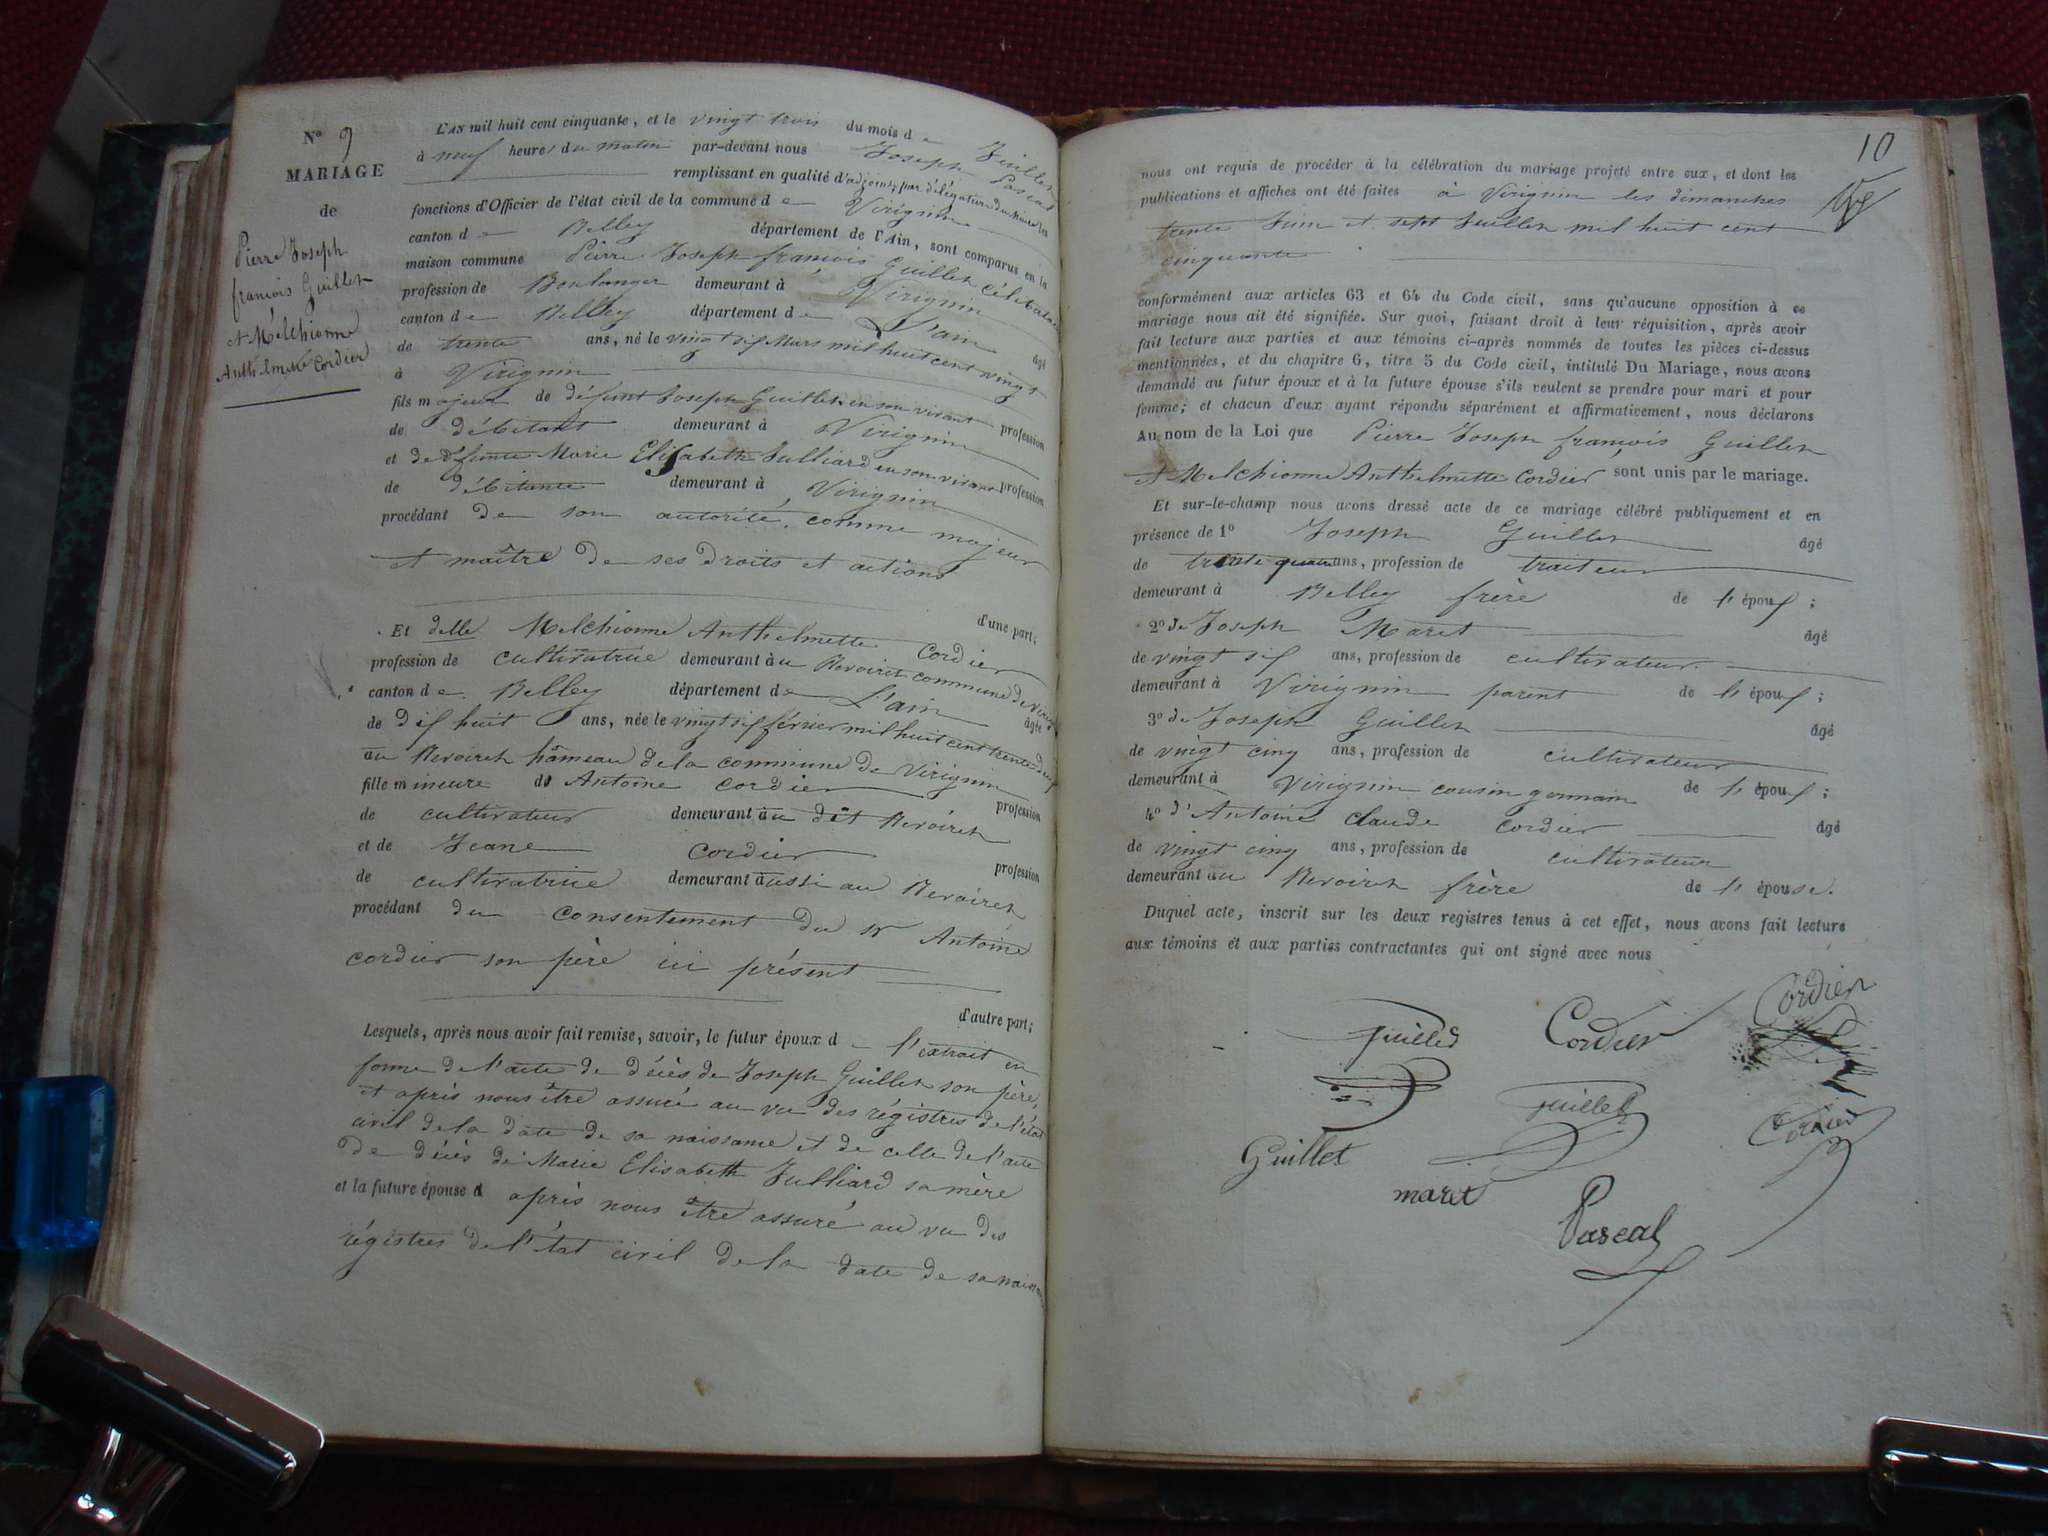 N° 9
MARIAGE
de
Pierre Joseph
françois Guillet
et Melchionne
Anthelmette Cordier
L'AN mil huit cent cinquante, et le vingt trois du mois de Juillet
à neuf heures du matin par-devant nous Joseph Pascal
remplissant en qualité d'adjoint, par délégation du Maire les
fonctions d'Officier de l'état civil de la commune de Virignin
canton de Belley département de l'Ain, sont comparus en la
maison commune Pierre Joseph françois Guillet célibataire
profession de Boulanger demeurant à Virignin
canton de Belley département de L'ain âgé
de trente ans, né le vingt six Mars mil huit cent vingt
à Virignin
fils majeur de défunt Joseph Guillet en son vivant profession
de débitant demeurant à Virignin
et de défunte Marie Elisabeth Julliard en son vivant profession
de débitante demeurant à Virignin
procédant de son autorité, comme majeur
et maître de ses droits et actions
d'une part;
Et delle Melchionne Anthelmette Cordier
profession de cultivatrice demeurant au Revoiret commune de Virignin
canton de Belley département de L'ain âgée
de dix huit ans, née le vingt six février mil huit cent trente deux
au Revoiret hâmeau de la commune de Virignin
fille mineure de Antoine Cordier profession
de cultivateur demeurant au dit Revoiret
et de Jeane Cordier profession
de cultivatrice demeurant aussi au Revoiret
procédant du consentement du sr Antoine
Cordier son père ici présent
d'autre part;
Lesquels, après nous avoir fait remise, savoir, le futur époux de l'extrait en
forme de l'acte de décès de Joseph Guillet son père,
et après nous être assuré au vu des régistres de l'état
civil de la date de sa naissance et de celle de l'acte
de décès de Marie Elisabeth Julliard sa mère
et la future épouse d après nous être assuré au vu des
régistres de l'état civil de la date de sa naiss
10
nous ont requis de procéder à la célébration du mariage projeté entre eux, et dont les
publications et affiches ont été faites à Virignin les dimanches
trente Juin et sept Juillet mil huit cent
cinquante
conformément aux articles 63 et 64 du Code civil, sans qu'aucune opposition à ce
mariage nous ait été signifiée. Sur quoi, faisant droit à leur réquisition, après avoir
fait lecture aux parties et aux témoins ci-après nommés de toutes les pièces ci-dessus
mentionnées, et du chapitre 6, titre 5 du Code civil, intitulé Du Mariage, nous avons
demandé au futur époux et à la future épouse s'ils veulent se prendre pour mari et pour
femme; et chacun d'eux ayant répondu séparément et affirmativement, nous déclarons
Au nom de la Loi que Pierre Joseph françois Guillet
et Melchionne Anthelmette Cordier sont unis par le mariage.
Et sur-le-champ nous avons dressé acte de ce mariage célébré publiquement et en
présence de 1° Joseph Guillet âgé
de trente quatre ans, profession de traiteur
demeurant à Belley frère de l'époux;
2° de Joseph Maret âgé
de vingt six ans, profession de cultivateur
demeurant à Virignin parent de l'époux;
3° de Joseph Guillet âgé
de vingt cinq ans, profession de cultivateur
demeurant à Virignin cousin germain de l'époux;
4° d'Antoine Claude Cordier âgé
de vingt cinq ans, profession de cultivateur
demeurant au Revoiret frère de l'épouse.
Duquel acte, inscrit sur les deux registres tenus à cet effet, nous avons fait lecture
aux témoins et aux parties contractantes qui ont signé avec nous
Guillet Cordier Cordier
Guillet Guillet Cordier
maret
Pascal